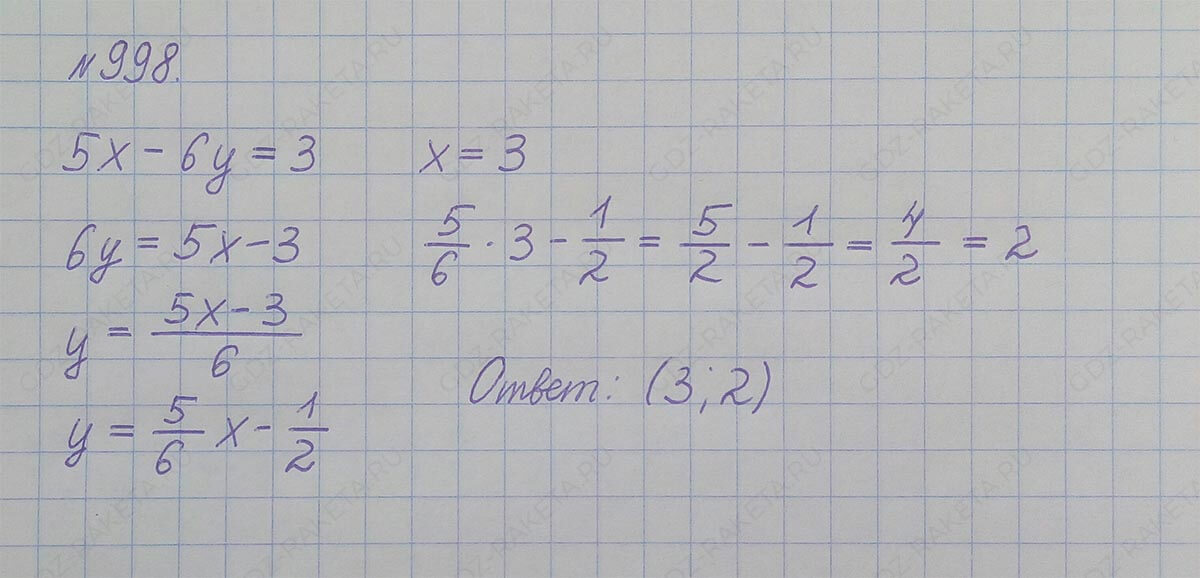 №998.
5x - 6y = 3
6y = 5x - 3
y = \frac{5x - 3}{6}
y = \frac{5}{6} x - \frac{1}{2}
x = 3
\frac{5}{6} · 3 - \frac{1}{2} = \frac{5}{2} - \frac{1}{2} = \frac{4}{2} = 2
Ответ: (3; 2)
GDZ-RAKETA.RU